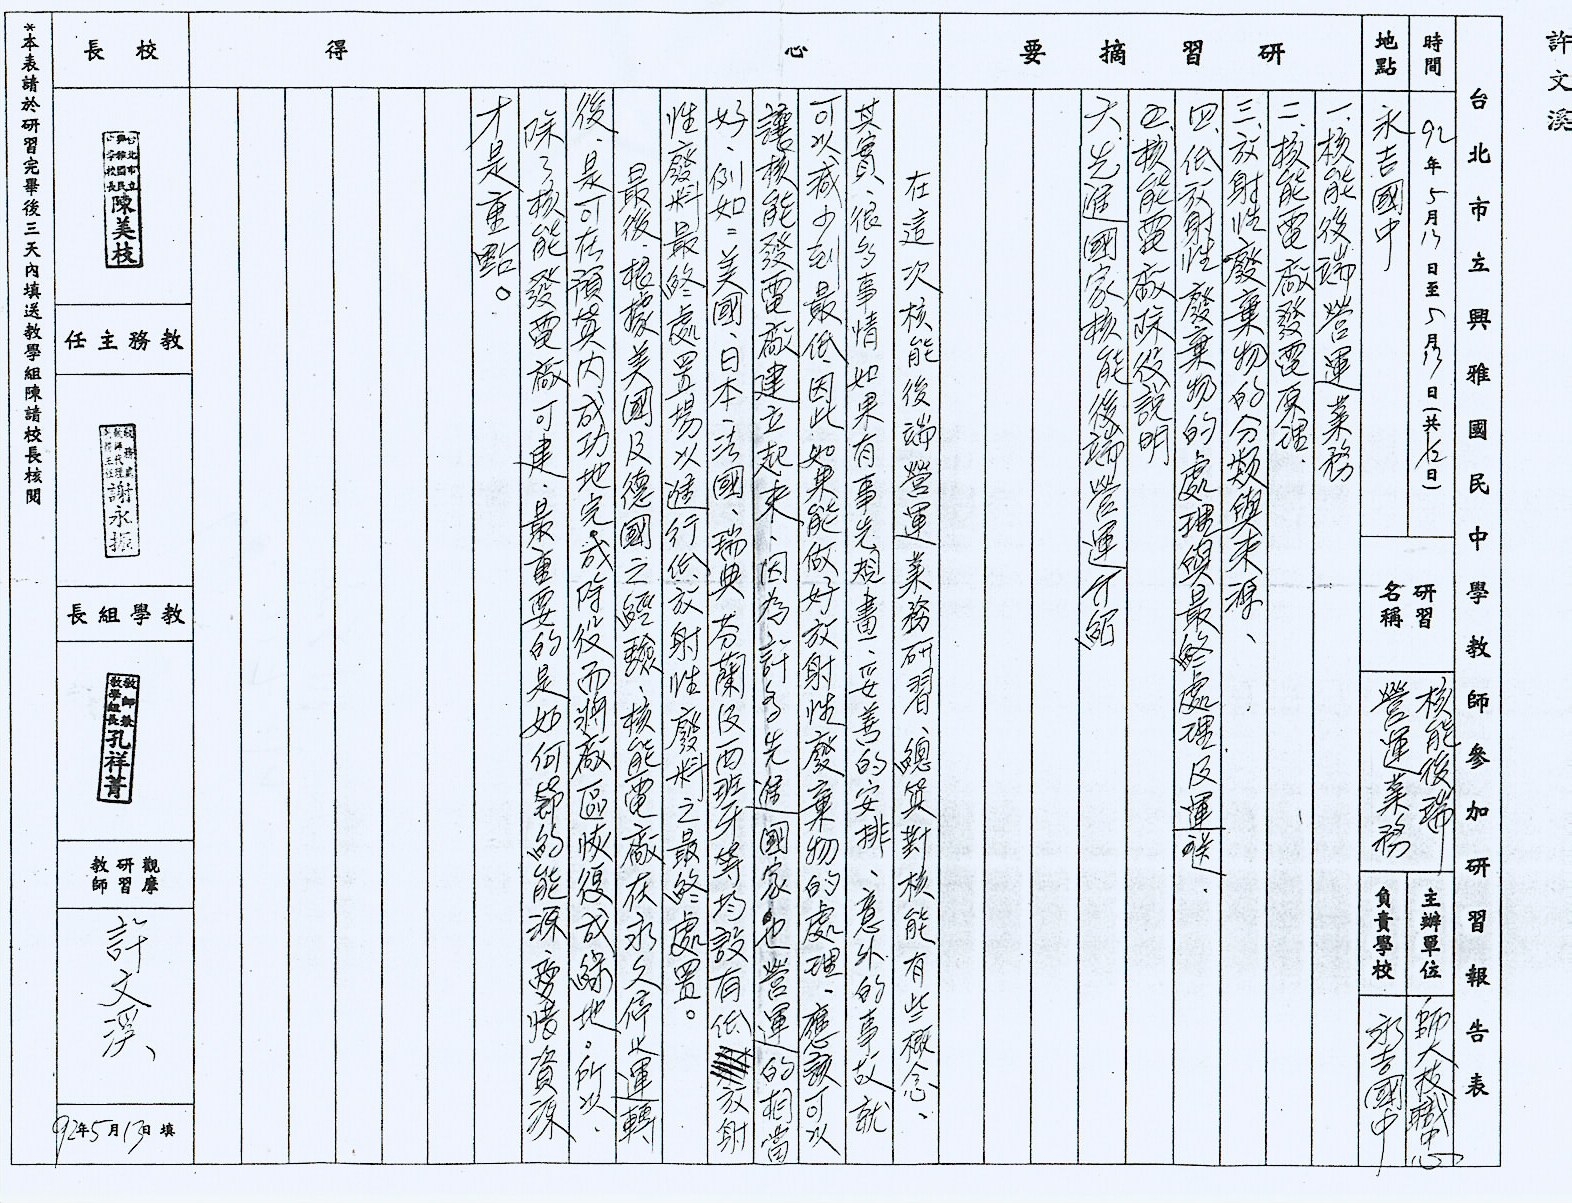 許文溪
台北市立興雅國民中學教師參加研習報告表
時間
92年5月13日至5月13日(共1日)
研習名稱
核能後端營運業務
主辦單位
師大技職中心
地點
永吉國中
負責學校
永吉國中
研習摘要
一、核能後端營運業務
二、核能電廠發電原理、
三、放射性廢棄物的分類與來源、
四、低放射性廢棄物的處理與最終處理及運送、
五、核能電廠除役說明
六、先進國家核能後端營運介紹
心得
在這次核能後端營運業務研習、總算對核能有些概念、
其實、很多事情如果有事先規畫、妥善的安排、意外的事故就
可以減少到最低、因此如果能做好放射性廢棄物的處理、應該可以
讓核能發電廠建立起來、因為許多先進國家也營運的相當
好、例如:美國、日本、法國、瑞典、芬蘭及西班牙等均設有低放射
性廢料最終處置場以進行低放射性廢料之最終處置。
最後、根據美國及德國之經驗、核能電廠在永久停止運轉
後、是可在預算內成功地完成除役而將廠區恢復成綠地。所以、
除了核能發電廠可建、最重要的是如何節約能源、愛惜資源
才是重點。
校長
台北市立興雅國民中學校長 陳美枝
教務主任
謝永振
教學組長
教師兼教學組長 孔祥菁
觀摩研習教師
許文溪
92年5月13日填
*本表請於研習完畢後三天內填送教學組陳請校長核閱